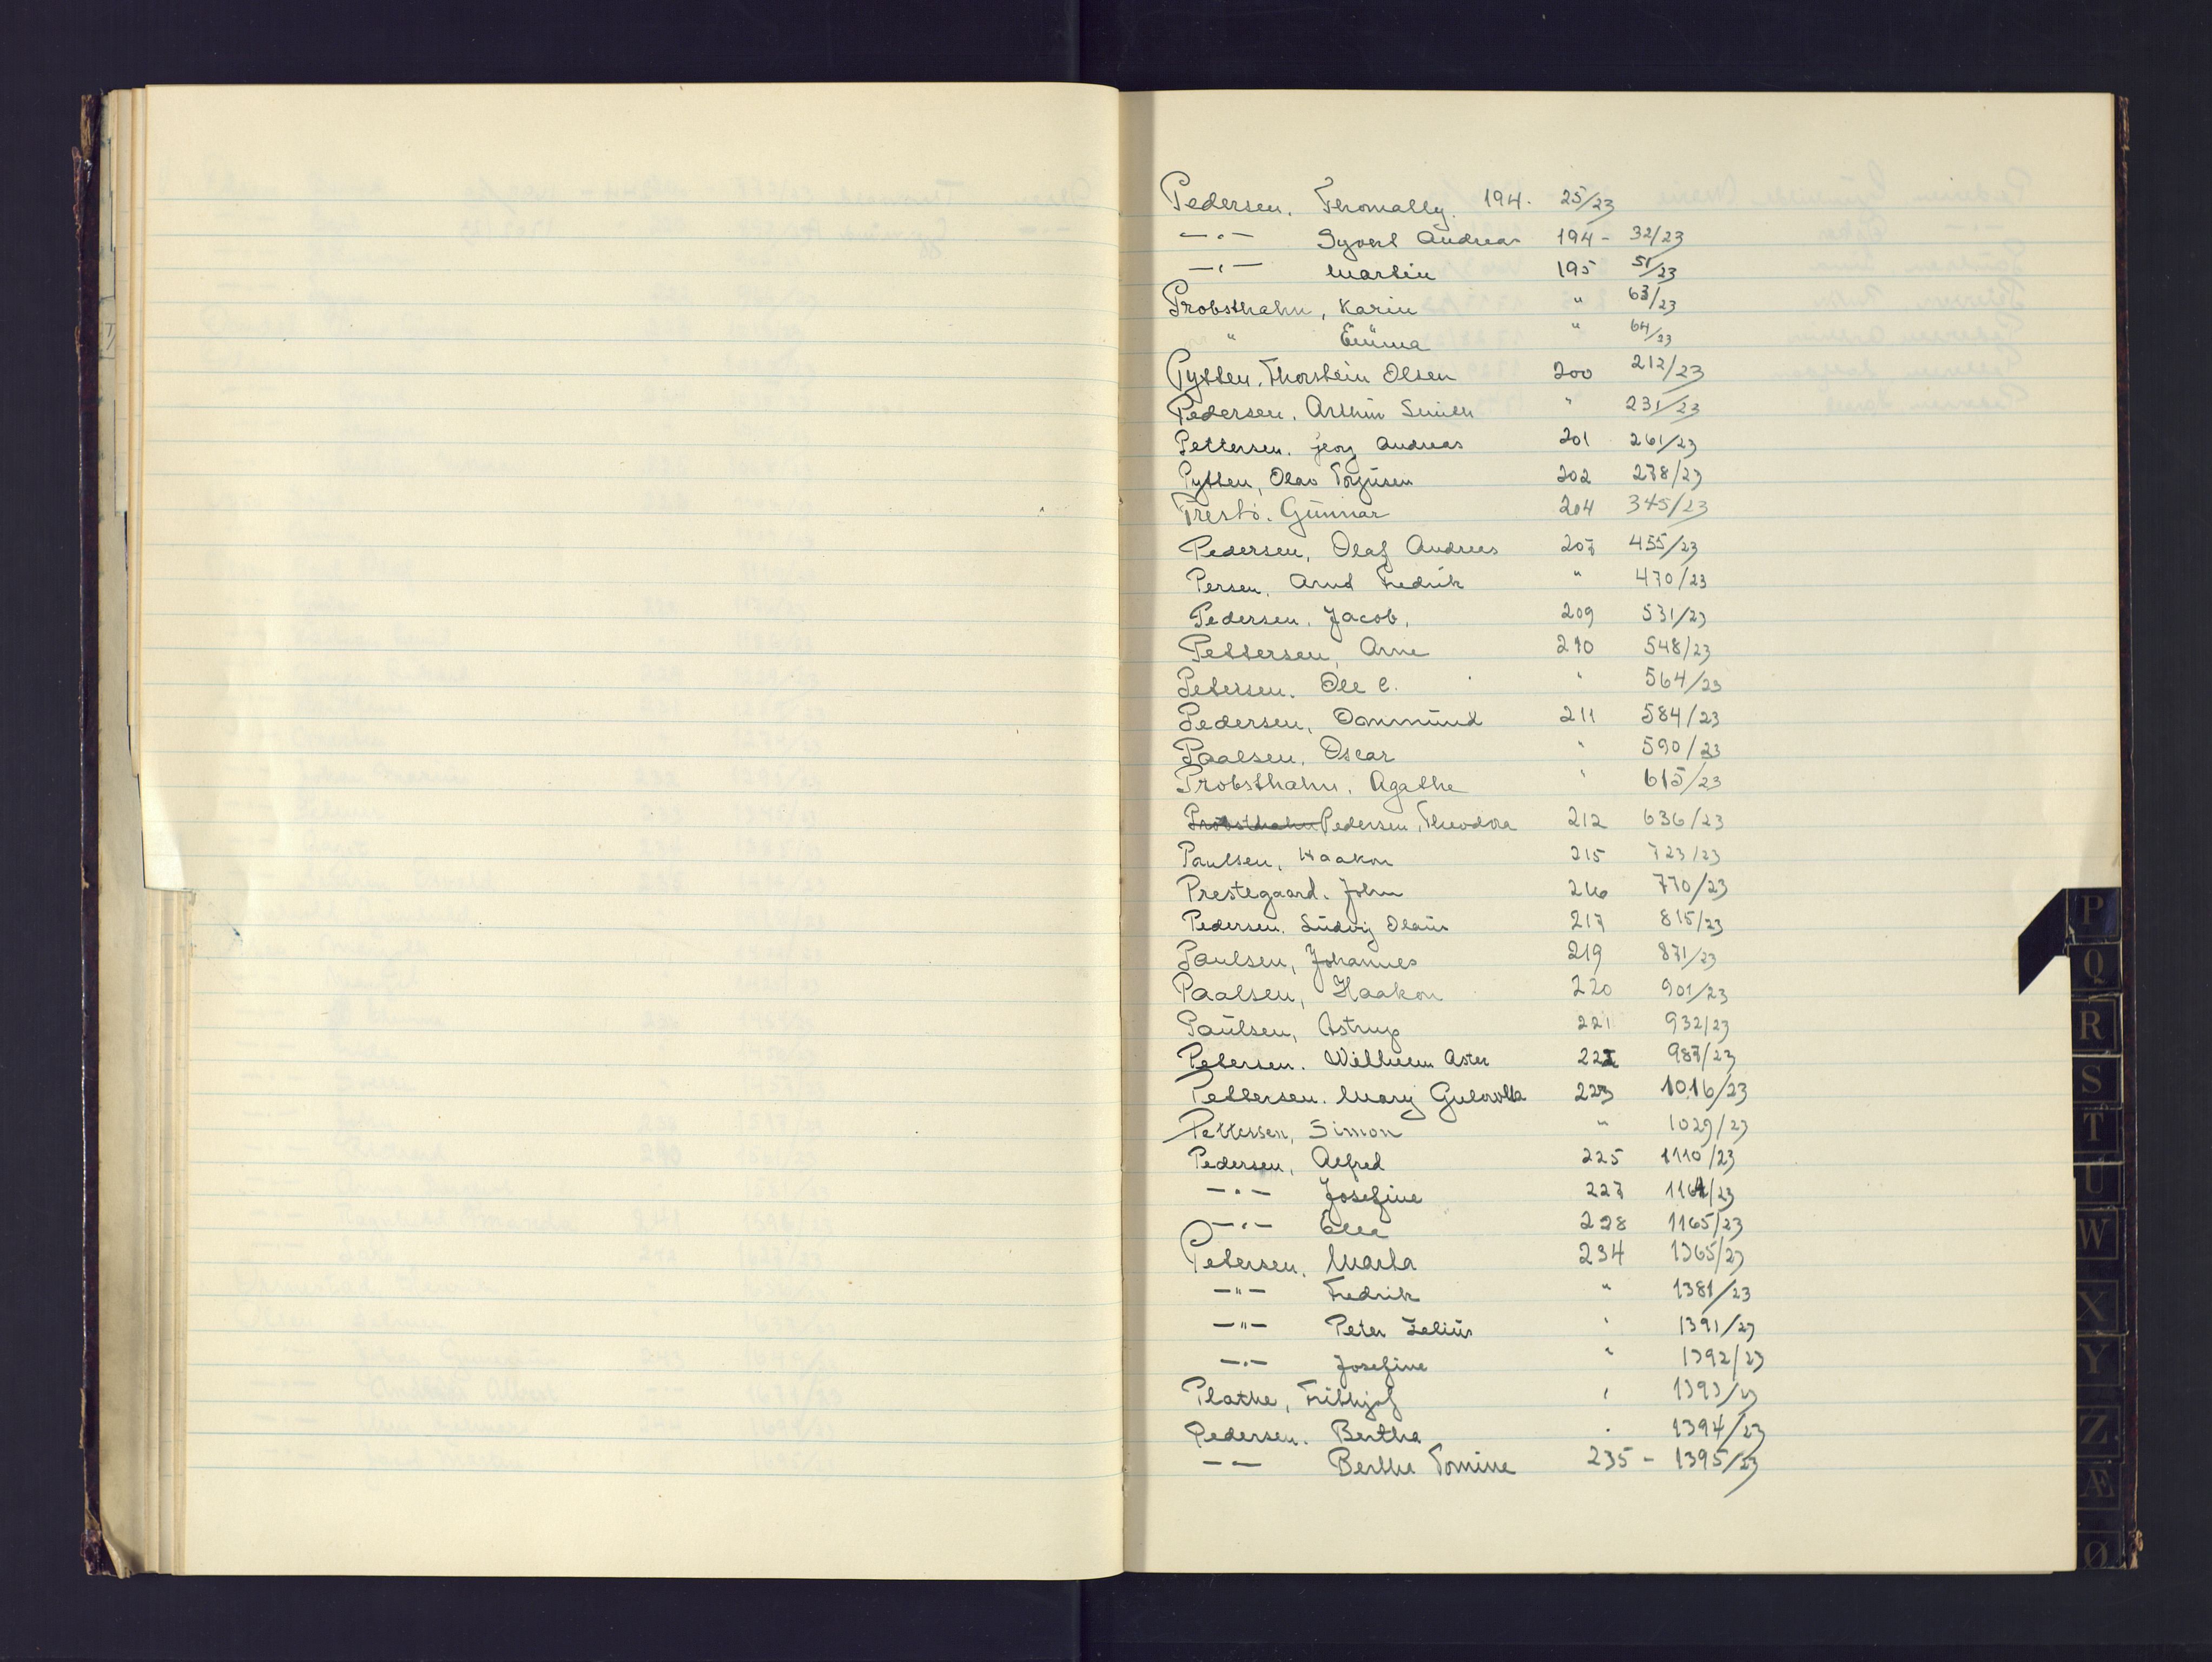 Pedersen. Thomally. 194. 25/23
—"— Syvert Andreas 194 - 32/23
—"— Martin 195 51/23
Probsthahn, Karin " 63/23
" Emma " 64/23
Pytten. Thorstein Olsen 200 212/23
Pedersen. Arthur Smith " 231/23
Pettersen. Georg Andreas 201 261/23
Pytten, Olav Torjusen 202 278/23
Prestø. Gunnar 204 345/23
Pedersen, Olaf Andreas 207 455/23
Persen. Arnt Fredrik " 470/23
Pedersen. Jacob. 209 531/23
Pettersen, Arne 210 548/23
Petersen. Ole C. " 564/23
Pedersen, Dommund 211 584/23
Paalsen, Oscar " 590/23
Probsthahn, Agathe " 615/23
Probsthahn Pedersen, Theodora 212 636/23
Paulsen, Haakon 215 723/23
Prestegaard. John 216 770/23
Pedersen. Ludvig Olaus 217 815/23
Paulsen, Johannes 219 871/23
Paalsen, Haakon 220 901/23
Paulsen, Astrup 221 932/23
Petersen. Wilhelm Aster 222 987/23
Pettersen. Mary 223 1016/23
Pettersen, Simon " 1029/23
Pedersen, Alfred 225 1110/23
—"— Josefine 227 1164/23
—"— Ella 228 1165/23
Petersen. Marta 234 1365/23
—"— Fredrik " 1381/23
—"— Peter Zelius " 1391/23
—"— Josefine " 1392/23
Plathe, Frithjof " 1393/23
Pedersen. Bertha " 1394/23
—— Berthe Tomine 235 - 1395/23
P
Q
R
S
T
U
W
X
Y
Z
Æ
Ø